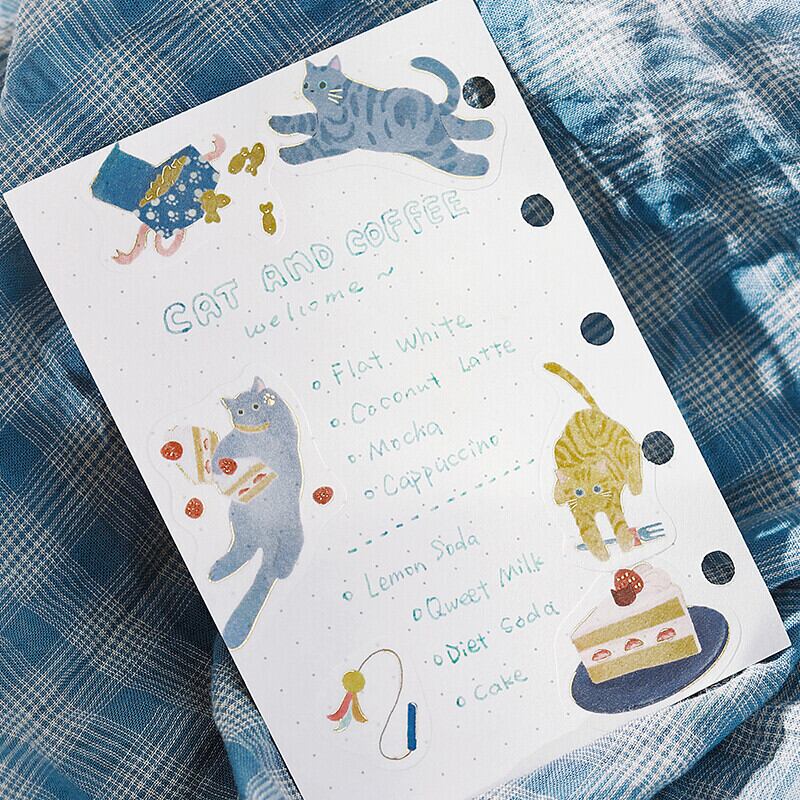 CAT AND COFFEE
welcome ~
Flat White
Coconut Latte
Mocha
Cappuccino
Lemon Soda
Qweet Milk
Diet Soda
Cake